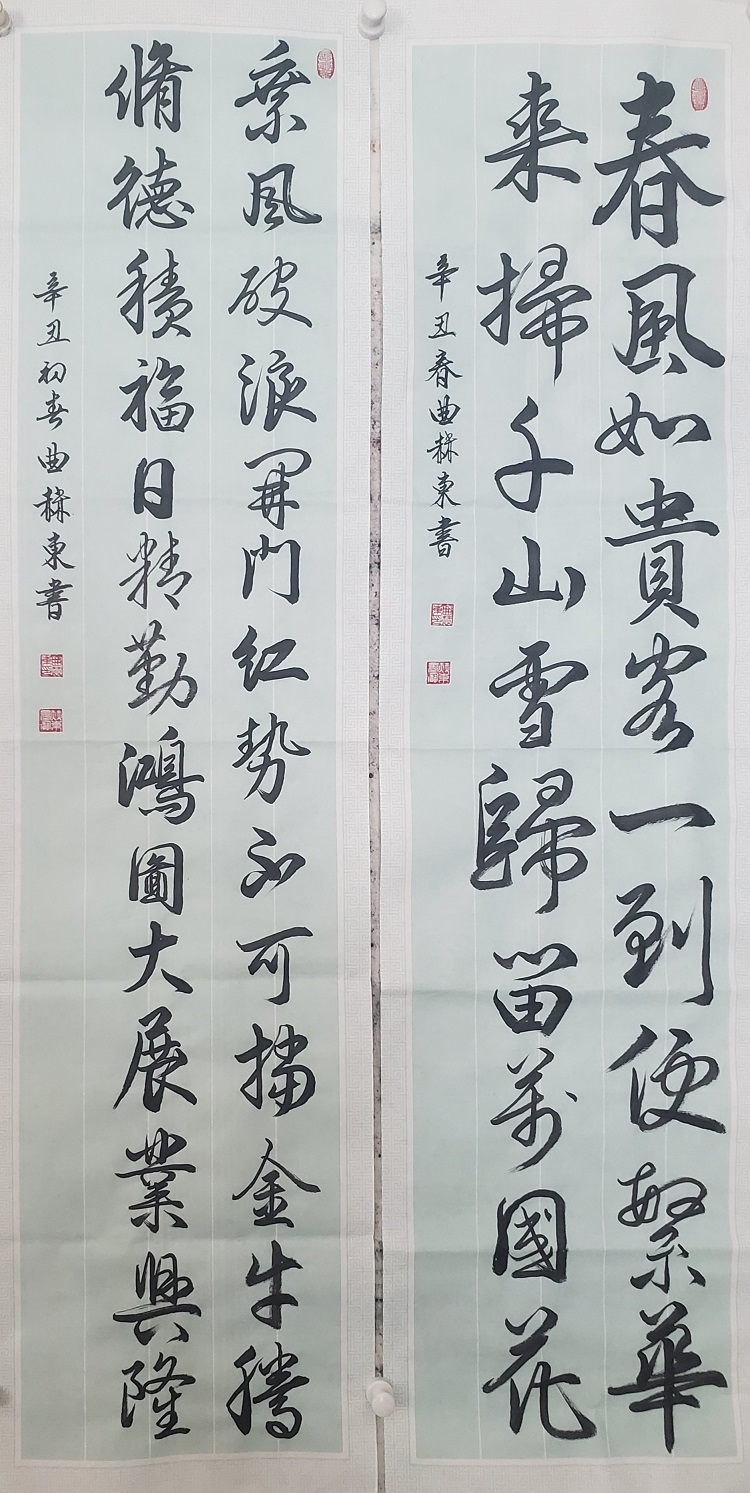 春風如貴客一到便繁華
来掃千山雪歸留萬國花
辛丑春曲東書
乘風破浪開門紅勢不可擋金牛騰
脩德積福日精勤鴻圖大展業興隆
辛丑初春曲東書